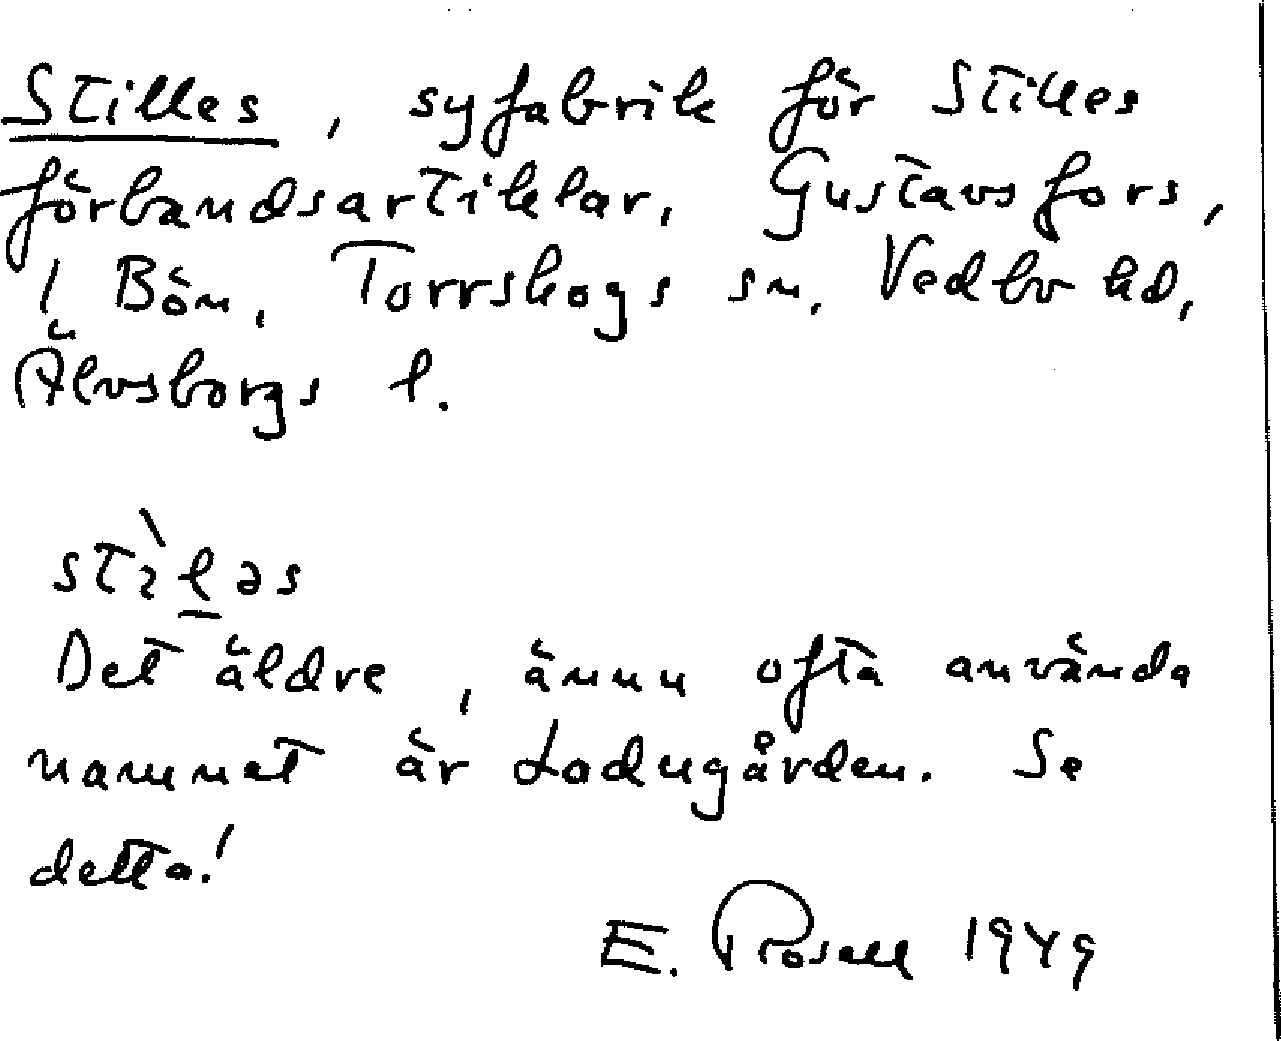 Stilles, syfabrik för Stilles
förbandsartiklar, Gustavsfors,
1 Bön, Torrskogs sn, Vedbo hd,
Älvsborgs l.
stìl̠əs
Det äldre, ännu ofta använda
namnet är Ladugården. Se
detta!
E. Rosell 1949